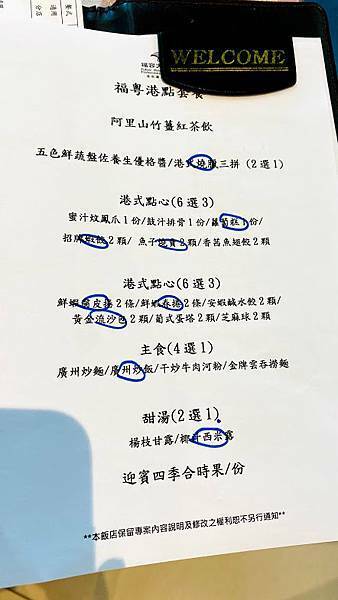 WELCOME
福粵港點套餐
阿里山竹薑紅茶飲
五色鮮蔬盤佐養生優格醬/港式燒臘三拼(2選1)
港式點心(6選3)
蜜汁炆鳳爪1份/豉汁排骨1份/蘿蔔糕1份/
招牌蝦餃2顆/ 魚子燒賣2顆/香茜魚翅餃2顆
港式點心(6選3)
鮮蝦腐皮捲2條/鮮蝦春捲2條/安蝦鹹水餃2顆/
黃金流沙包2顆/葡式蛋塔2顆/芝麻球2顆
主食(4選1)
廣州炒麵/廣州炒飯/干炒牛肉河粉/金牌雲吞撈麵
甜湯(2選1)
楊枝甘露/椰汁西米露
迎賓四季合時果/份
**本飯店保留專案內容說明及修改之權利恕不另行通知**